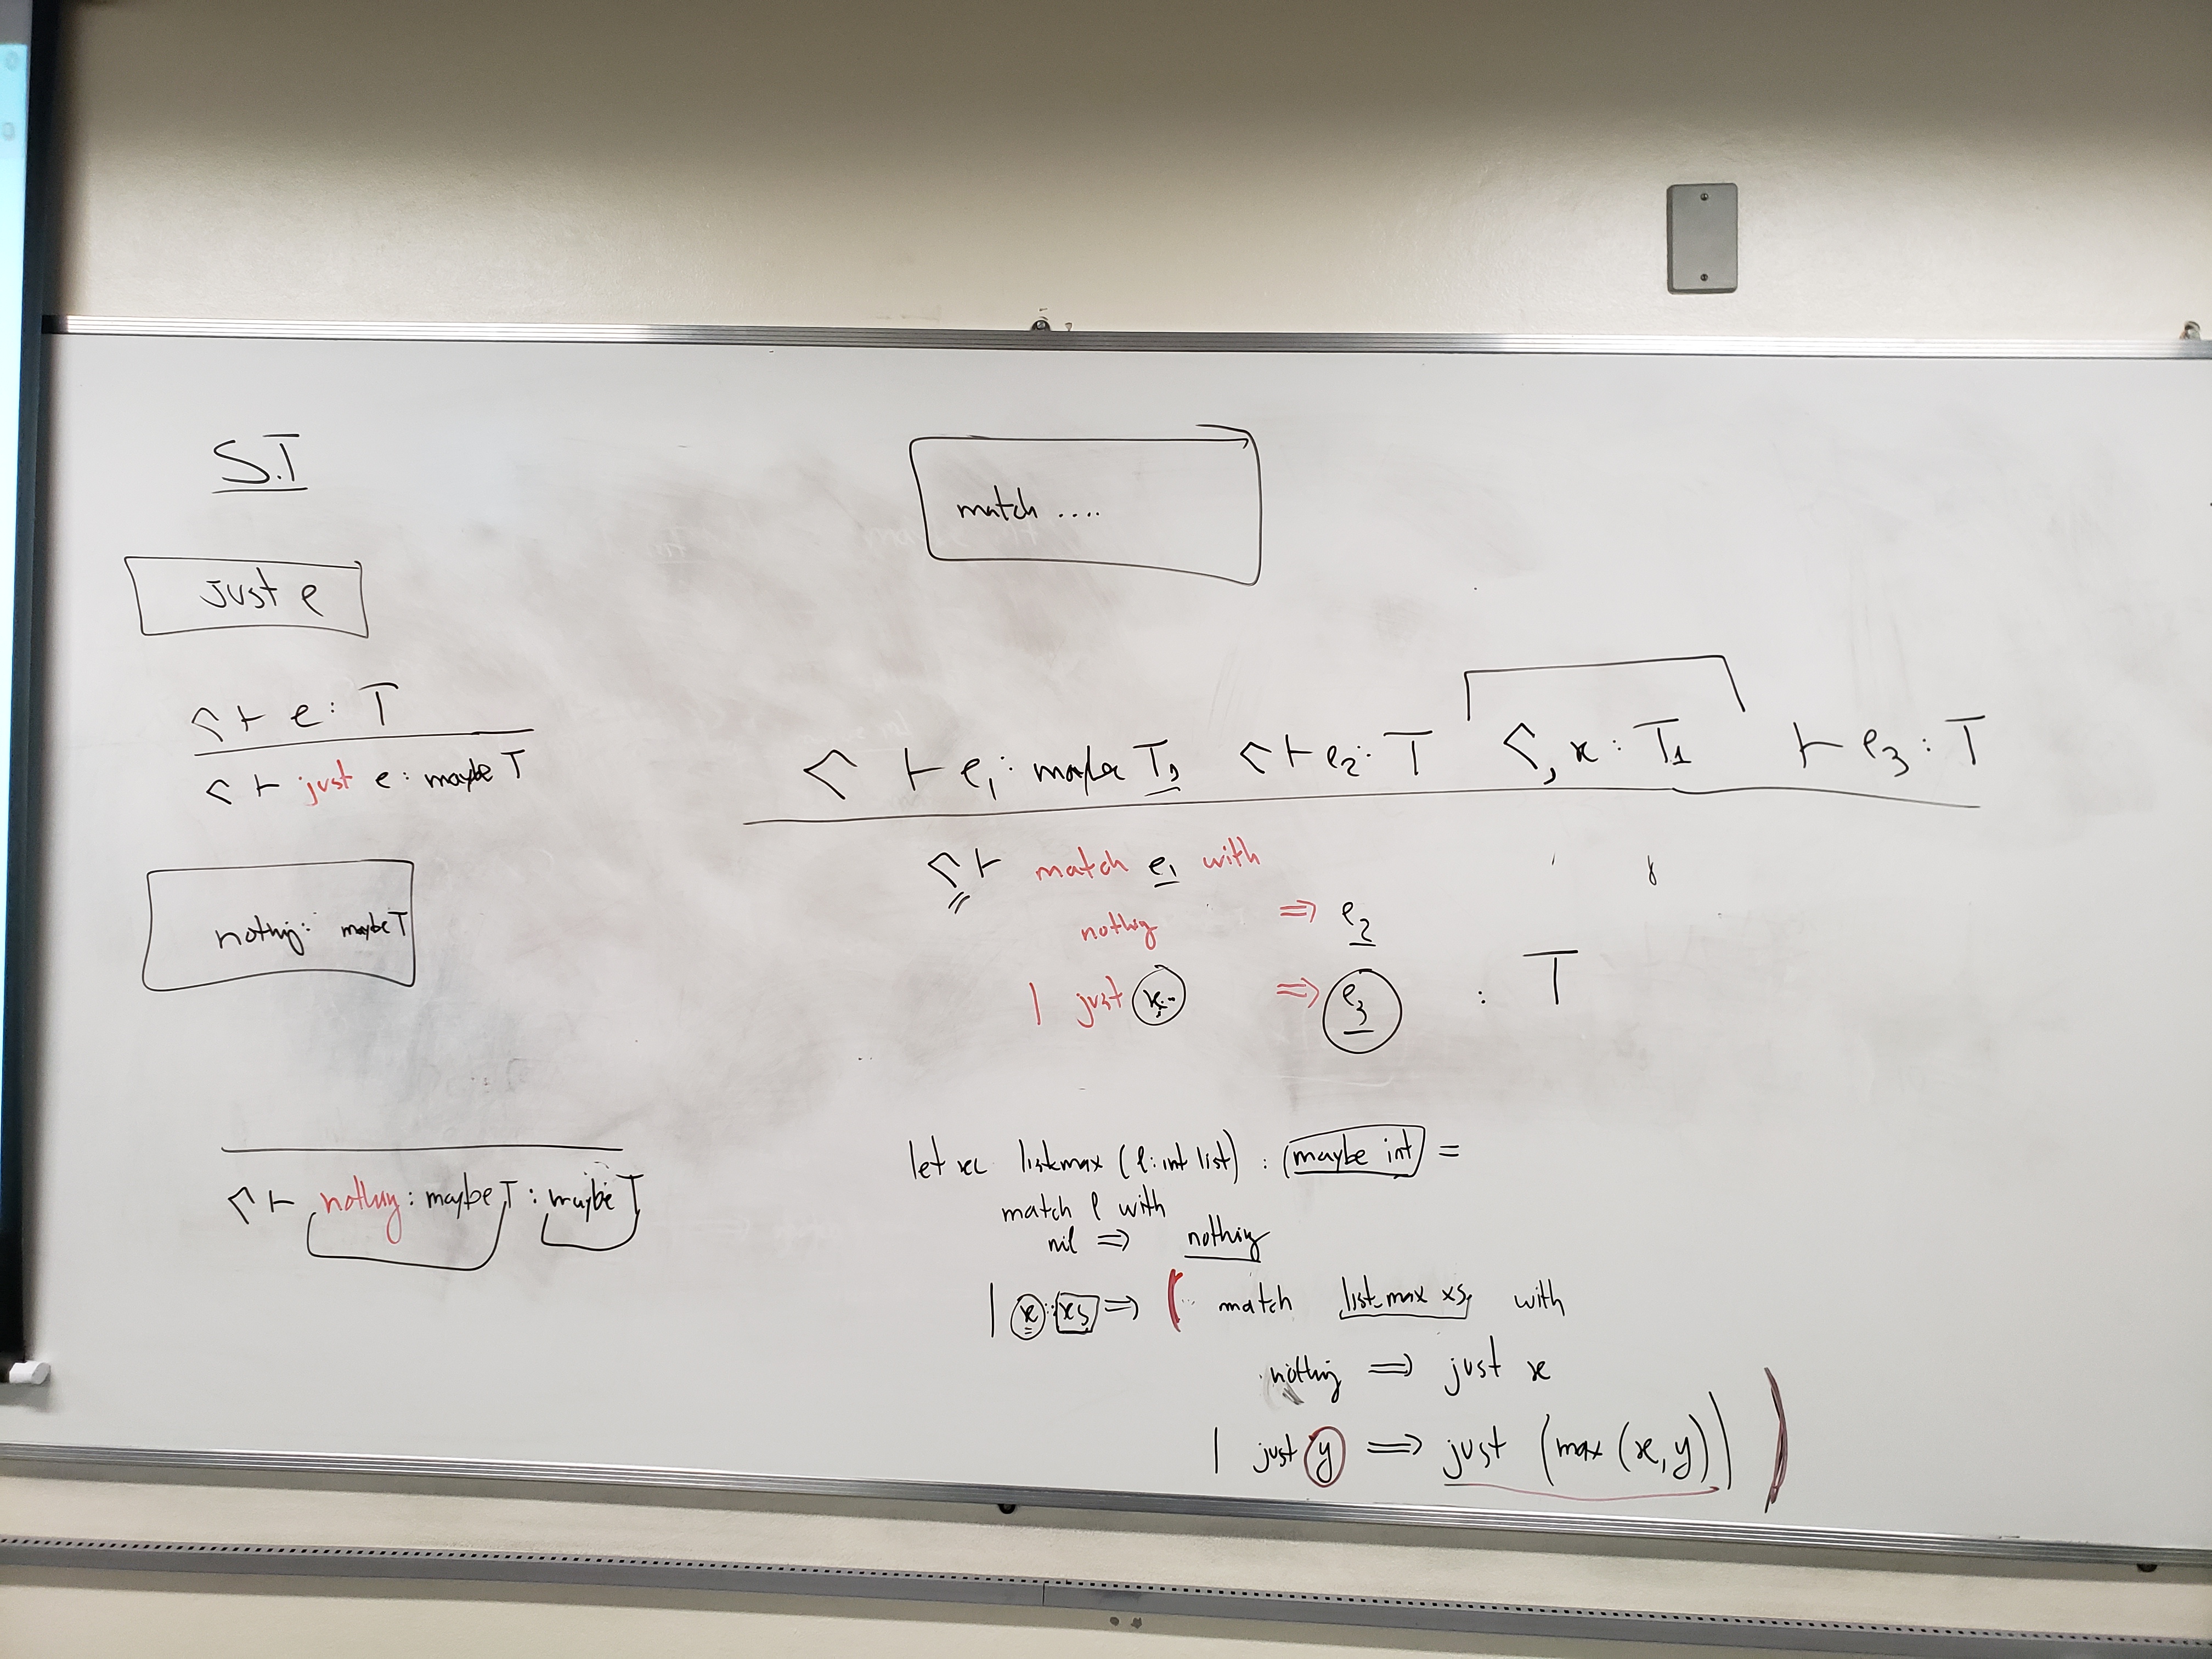 S.T
just e
Γ ⊢ e : T
Γ ⊢ just e : maybe T
nothing : maybe T
Γ ⊢ nothing : maybe T : maybe T
match ....
Γ ⊢ e₁ : maybe T₁ Γ ⊢ e₂ : T Γ, x : T₁ ⊢ e₃ : T
Γ ⊢ match e₁ with
nothing ⇒ e₂
| just x ⇒ e₃ : T
let rec listmax (l : int list) : (maybe int) =
match l with
nil ⇒ nothing
| x :: xs ⇒ ( match list_max xs with
nothing ⇒ just x
| just y ⇒ just (max (x, y)) )